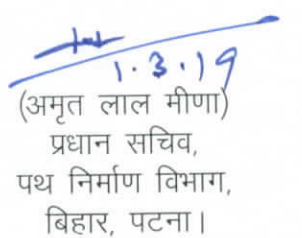 1.3.19
(अमृत लाल मीणा)
प्रधान सचिव,
पथ निर्माण विभाग,
बिहार, पटना।